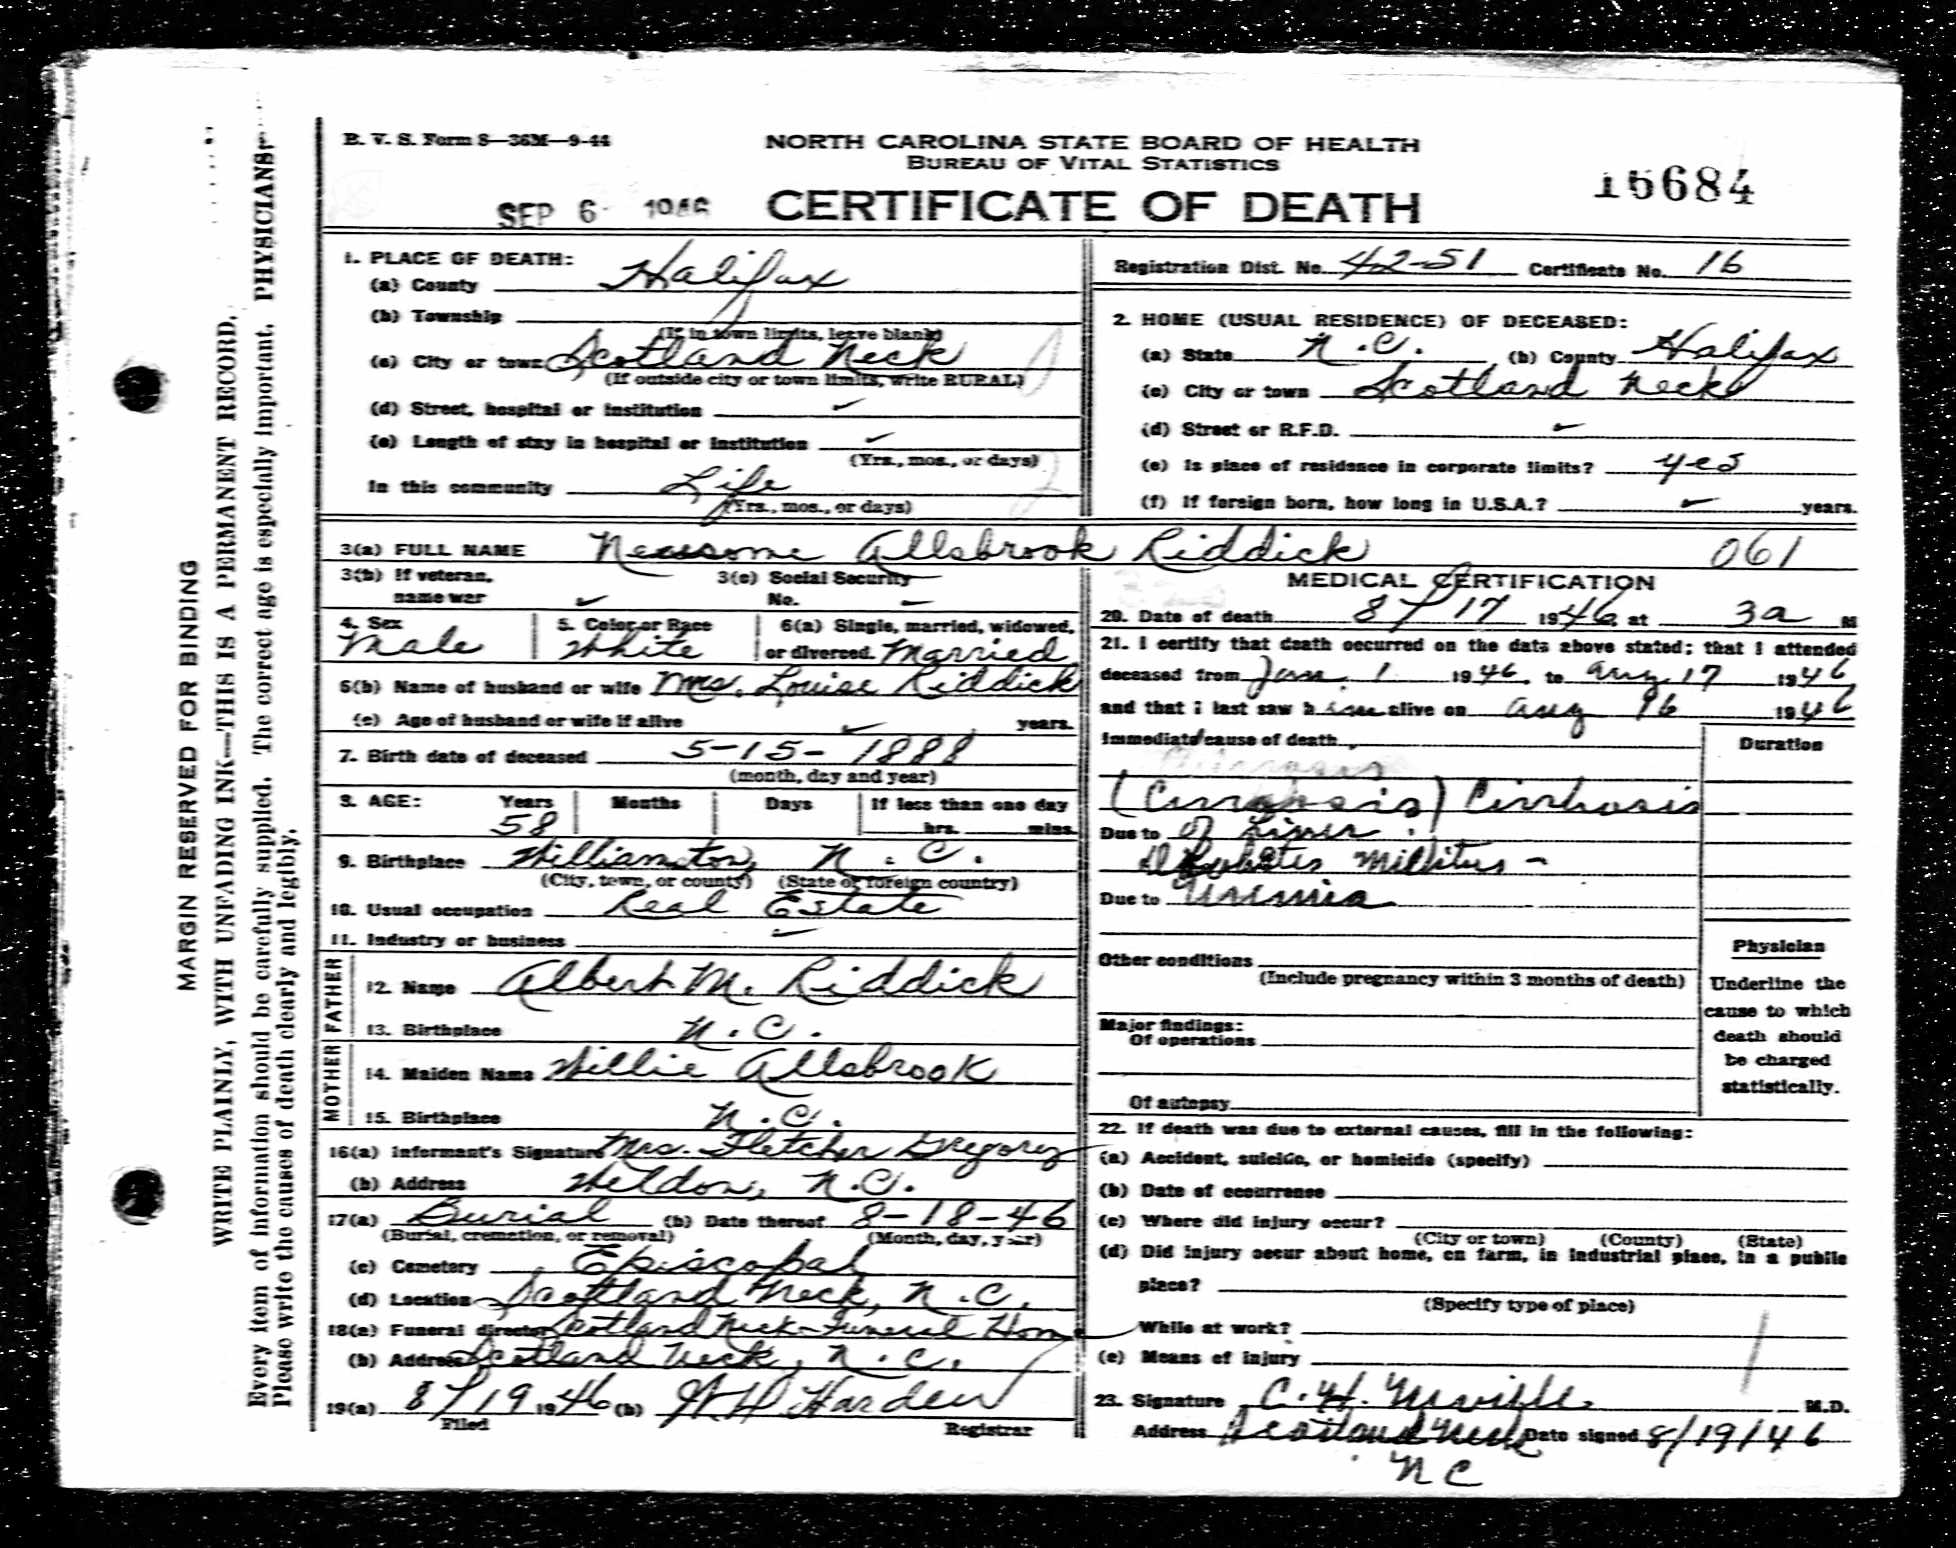 B. V. S. Form 8—36M—9-44
NORTH CAROLINA STATE BOARD OF HEALTH
BUREAU OF VITAL STATISTICS
SEP 6 1946
CERTIFICATE OF DEATH
15684
MARGIN RESERVED FOR BINDING
WRITE PLAINLY, WITH UNFADING INK—THIS IS A PERMANENT RECORD.
Every item of information should be carefully supplied. The correct age is especially important. PHYSICIANS:
Please write the causes of death clearly and legibly.
1. PLACE OF DEATH:
(a) County Halifax
(b) Township
(If in town limits, leave blank)
(c) City or town Scotland Neck
(If outside city or town limits, write RURAL)
(d) Street, hospital or institution ✓
(e) Length of stay in hospital or institution ✓
(Yrs., mos., or days)
In this community Life
(Yrs., mos., or days)
Registration Dist. No. 42-51 Certificate No. 16
2. HOME (USUAL RESIDENCE) OF DECEASED:
(a) State N.C. (b) County Halifax
(c) City or town Scotland Neck
(d) Street or R.F.D. ✓
(e) Is place of residence in corporate limits? yes
(f) If foreign born, how long in U.S.A.? ✓ years.
3(a) FULL NAME Newsome Allsbrook Riddick 061
3(b) If veteran, name war ✓
3(c) Social Security No. –
4. Sex Male
5. Color or Race White
6(a) Single, married, widowed, or divorced. Married
6(b) Name of husband or wife Mrs. Louise Riddick
(c) Age of husband or wife if alive ✓ years.
7. Birth date of deceased 5-15-1888
(month, day and year)
8. AGE: Years 58 Months Days If less than one day
hrs. mins.
9. Birthplace Williamston, N.C.
(City, town, or county) (State or foreign country)
10. Usual occupation Real Estate
11. Industry or business ✓
FATHER
12. Name Albert M. Riddick
13. Birthplace N.C.
MOTHER
14. Maiden Name Willie Allsbrook
15. Birthplace N.C.
16(a) Informant's Signature Mrs. Fletcher Gregory
(b) Address Weldon, N.C.
17(a) Burial (b) Date thereof 8-18-46
(Burial, cremation, or removal) (Month, day, year)
(c) Cemetery Episcopal
(d) Location Scotland Neck, N.C.
18(a) Funeral director Scotland Neck Funeral Home
(b) Address Scotland Neck, N.C.
19(a) 8/19 1946 (b) W H Harden
Filed Registrar
MEDICAL CERTIFICATION
20. Date of death 8/17 1946 at 3a M
21. I certify that death occurred on the date above stated; that I attended
deceased from Jan. 1 1946, to Aug 17 1946
and that I last saw him alive on Aug 16 1946
Immediate cause of death
Duration
(Cirrhosis) Cirrhosis
Due to of Liver.
Diabetes Millitus -
Due to Uremia
Other conditions
(Include pregnancy within 3 months of death)
Major findings:
Of operations
Of autopsy
Physician
Underline the
cause to which
death should
be charged
statistically.
22. If death was due to external causes, fill in the following:
(a) Accident, suicide, or homicide (specify)
(b) Date of occurrence
(c) Where did injury occur?
(City or town) (County) (State)
(d) Did injury occur about home, on farm, in industrial place, in a public
place?
(Specify type of place)
While at work?
(e) Means of injury
23. Signature C. H. M.D.
Address Scotland Neck Date signed 8/19/46
N C